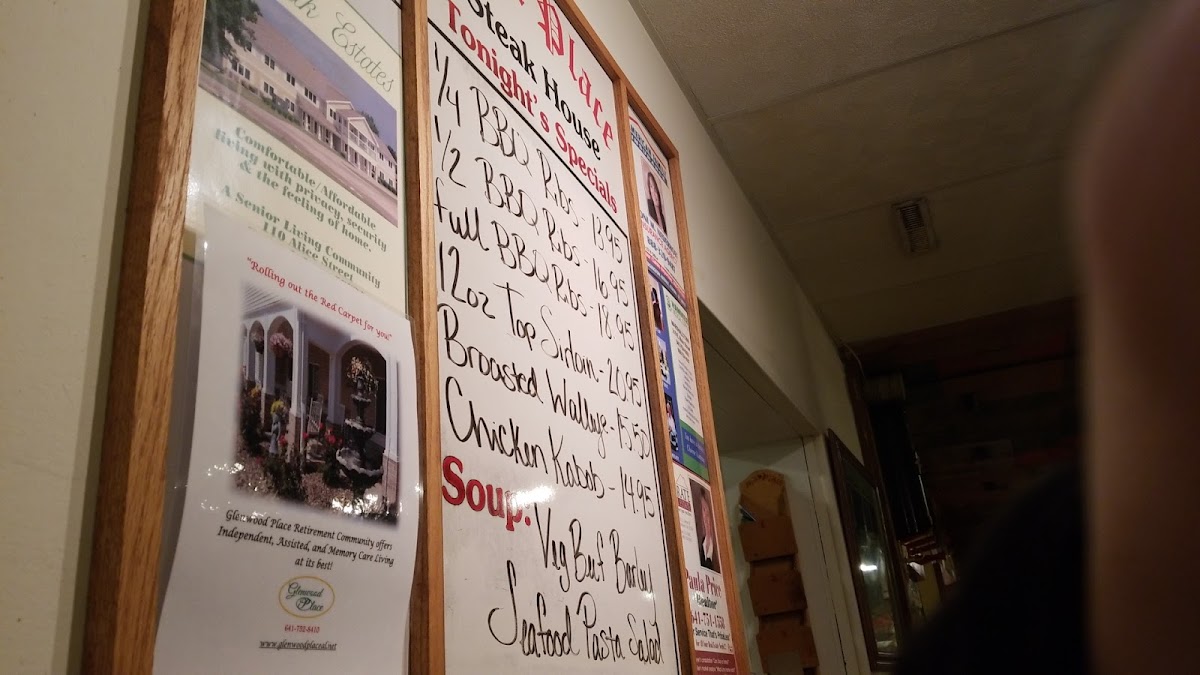 Estates
Comfortable/Affordable
living with privacy, security
& the feeling of home.
A Senior Living Community
110 Alice Street
"Rolling out the Red Carpet for you!"
Glenwood Place Retirement Community offers
Independent, Assisted, and Memory Care Living
at its best!
Glenwood
Place
641-752-8410
www.glenwoodplaceal.net
Place
Steak House
Tonight's Specials
1/4 BBQ Ribs - 13.95
1/2 BBQ Ribs - 16.95
full BBQ Ribs - 18.95
12oz Top Sirloin - 20.95
Broasted Walleye - 15.50
Chicken Kabob - 14.95
Soup:
Veg Beef Barley
Seafood Pasta Salad
Paula Price
Realtor